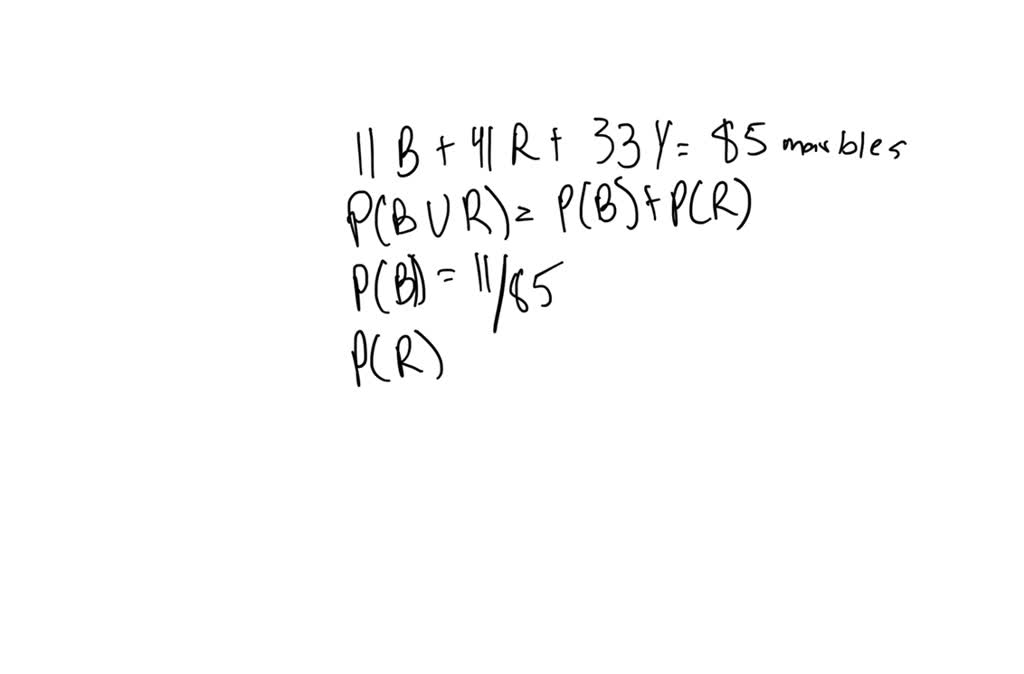 11 B + 41 R + 33 Y = 85 marbles
P(B ∪ R) = P(B) + P(R)
P(B) = 11/85
P(R)